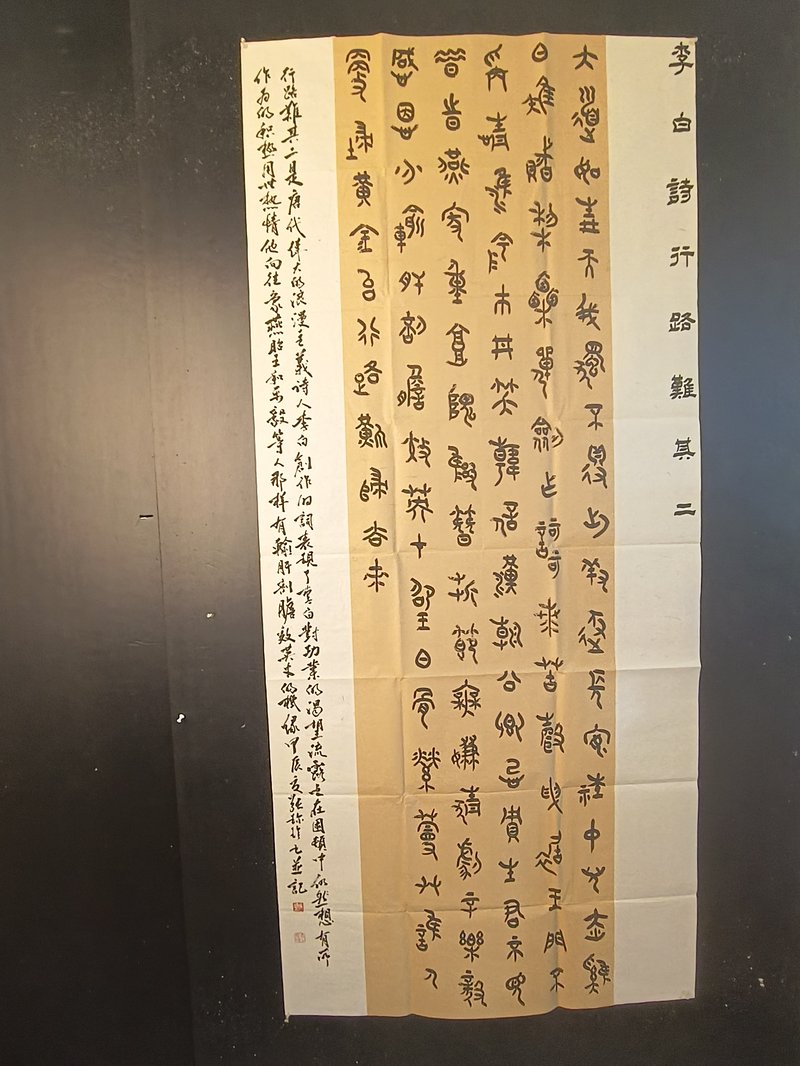 李白詩行路難其二
大道如青天我獨不得出羞逐長安社中兒赤雞
白雉賭梨栗彈劍作歌奏苦聲曳裾王門不
稱情淮陰市井笑韓信漢朝公卿忌賈生君不見
昔時燕家重郭隗擁篲折節無嫌猜劇辛樂毅
感恩分輸肝剖膽效英才昭王白骨縈蔓草誰人
更掃黃金臺行路難歸去來
行路難其二是唐代偉大的浪漫主義詩人李白創作的詞表現了李白對功業的渴望流露出在困頓中仍然想有所
作为的积极用世热情他向往象燕昭王和乐毅等人那样有輸肝剖膽效英才的機缘甲辰夏張並記